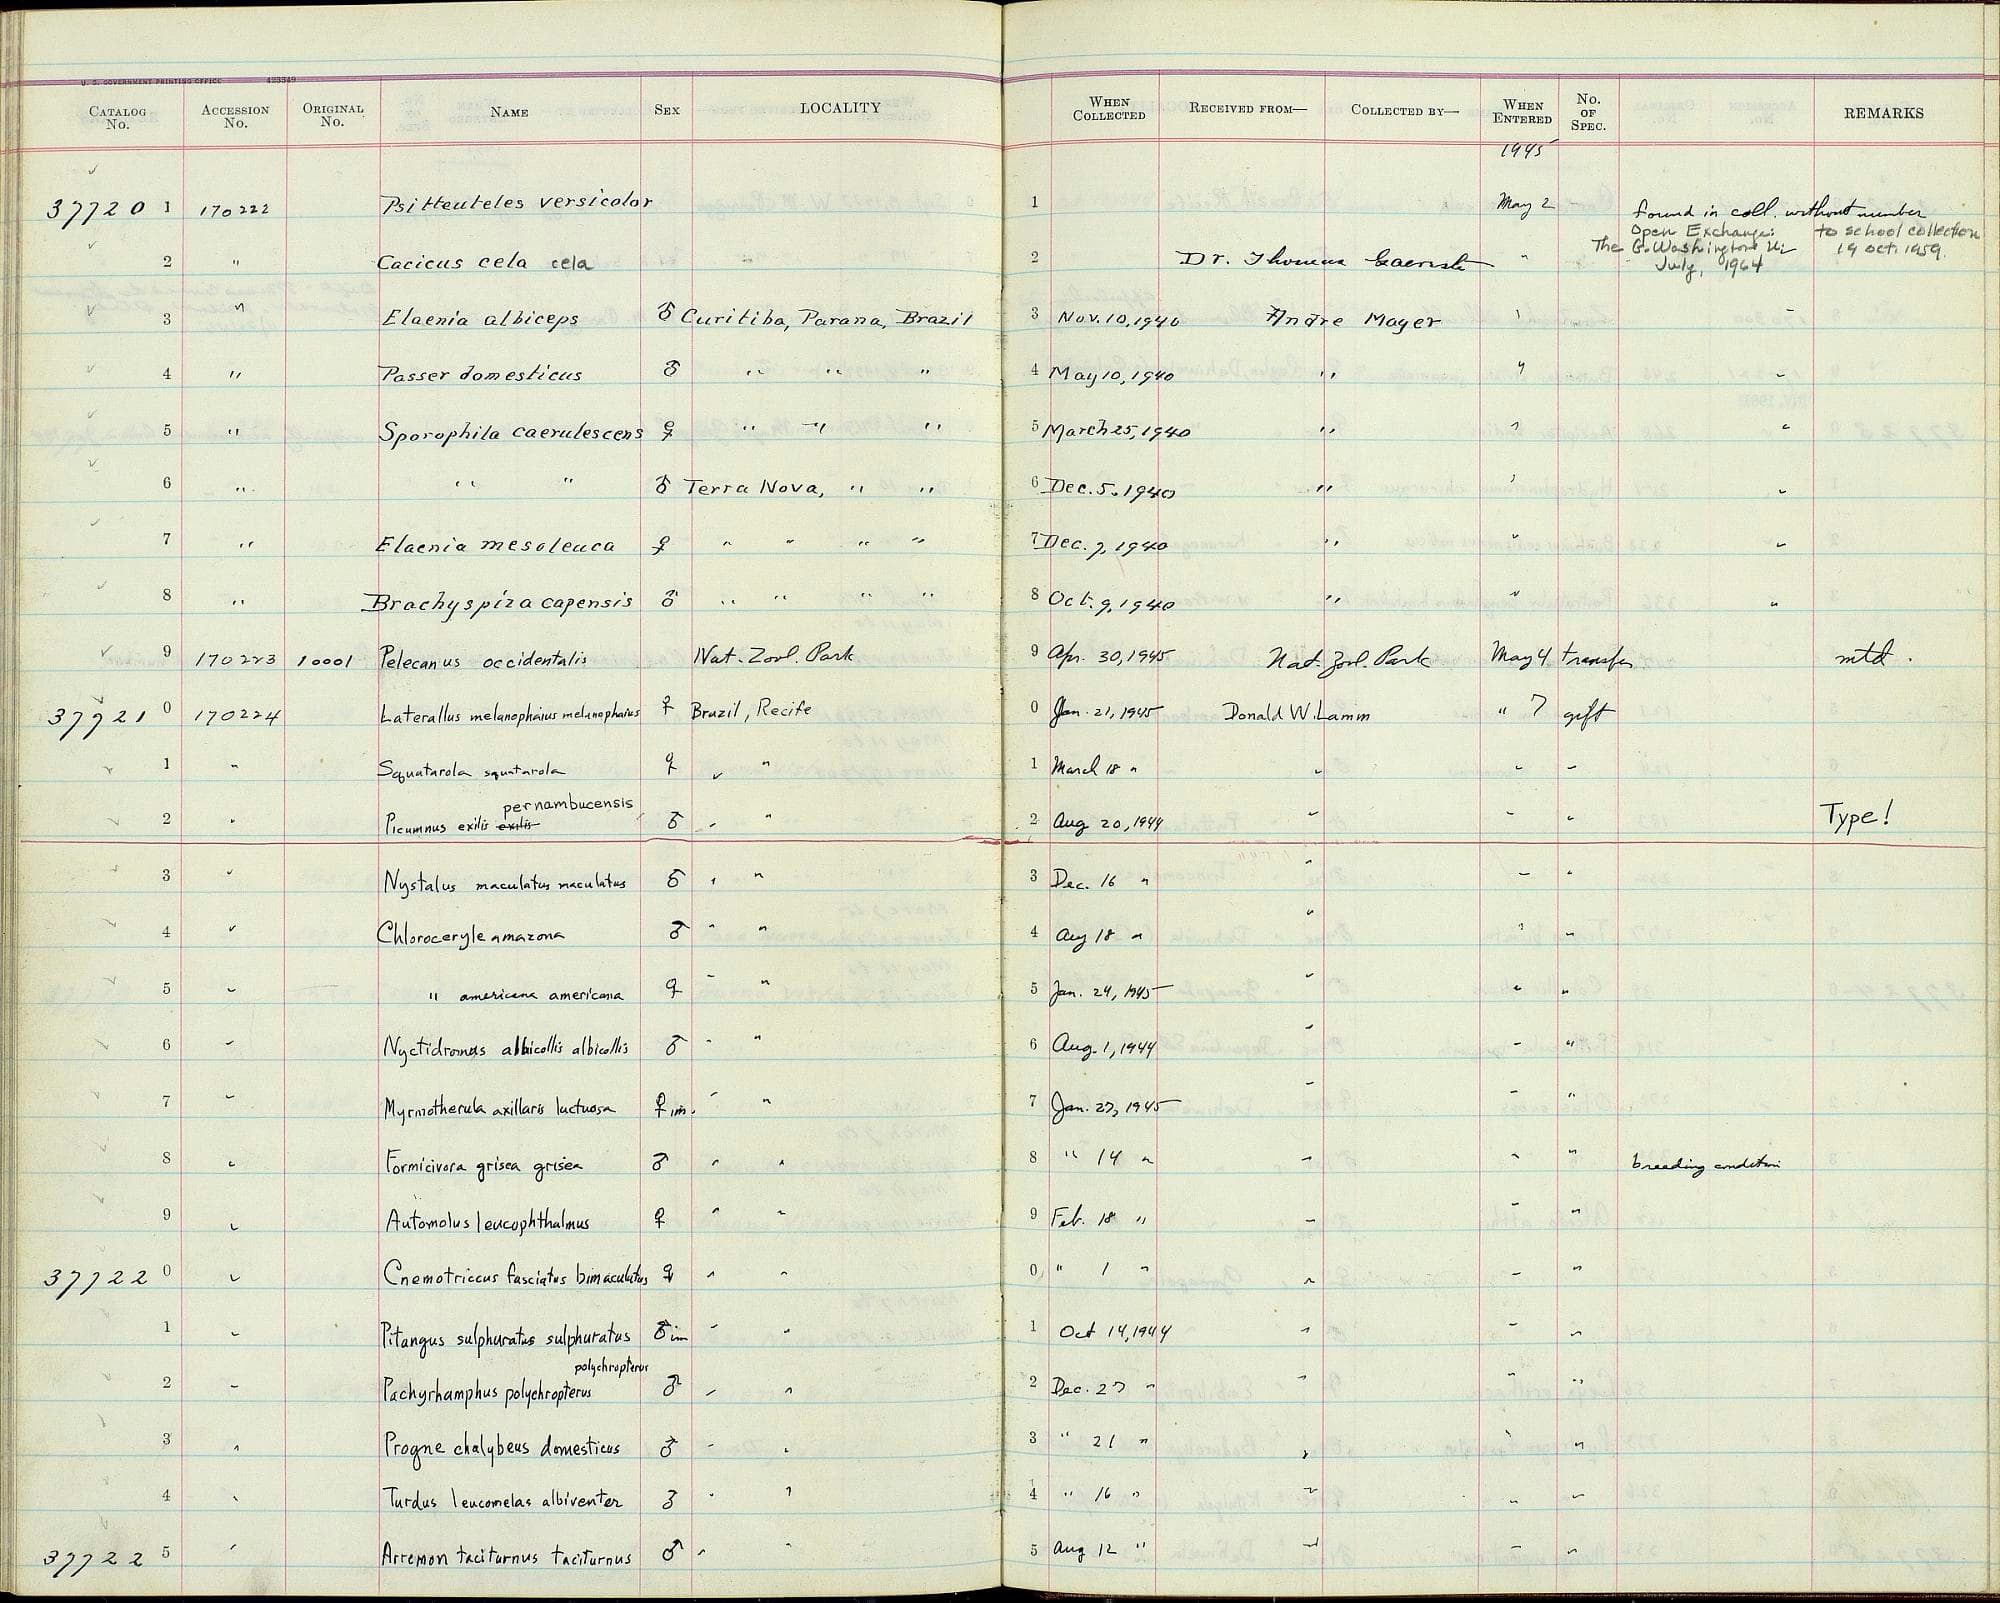 U. S. GOVERNMENT PRINTING OFFICE 423349
CATALOG No. ACCESSION No. ORIGINAL No. NAME SEX LOCALITY WHEN COLLECTED RECEIVED FROM— COLLECTED BY— WHEN ENTERED No. OF SPEC. REMARKS
1945
37720 1 170222 Psitteuteles versicolor 1 May 2 found in coll. without number
Open Exchange: to school collection
The G. Washington U. 19 Oct. 1959.
July, 1964
2 " Cacicus cela cela 2 Dr. Thomas "
3 " Elaenia albiceps ♂ Curitiba, Parana, Brazil 3 Nov. 10, 1940 Andre Mayer " "
4 " Passer domesticus ♂ " " " 4 May 10, 1940 " " "
5 " Sporophila caerulescens ♀ " " " 5 March 25, 1940 " " "
6 " " " ♂ Terra Nova, " " 6 Dec. 5, 1940 " " "
7 " Elaenia mesoleuca ♀ " " " " 7 Dec. 7, 1940 " " "
8 " Brachyspiza capensis ♂ " " " " 8 Oct. 9, 1940 " " "
9 170223 10001 Pelecanus occidentalis Nat. Zool. Park 9 Apr. 30, 1945 Nat. Zool. Park May 4 transfer mtd.
37721 0 170224 Laterallus melanophaius melanophaius ♀ Brazil, Recife 0 Jan. 21, 1945 Donald W. Lamm " 7 gift
1 " Squatarola squatarola ♀ " " 1 March 18 " " " "
pernambucensis
2 " Picumnus exilis exilis ♂ " " 2 Aug 20, 1944 " " " Type!
3 " Nystalus maculatus maculatus ♂ " " 3 Dec. 16 " " " "
4 " Chloroceryle amazona ♂ " " 4 Aug 18 " " " "
5 " " americana americana ♀ " " 5 Jan. 24, 1945 " " "
6 " Nyctidromus albicollis albicollis ♂ " " 6 Aug. 1, 1944 " " "
7 " Myrmotherula axillaris luctuosa ♀ im. " " 7 Jan. 27, 1945 " " "
8 " Formicivora grisea grisea ♂ " " 8 " 14 " " " " breeding condition
9 " Automolus leucophthalmus ♀ " " 9 Feb. 18 " " " "
37722 0 " Cnemotriccus fasciatus bimaculatus ♀ " " 0 " 1 " " " "
1 " Pitangus sulphuratus sulphuratus ♂ im " " 1 Oct 14, 1944 " " "
polychropterus
2 " Pachyrhamphus polychropterus ♂ " " 2 Dec. 27 " " " "
3 " Progne chalybeus domesticus ♂ " " 3 " 21 " " " "
4 " Turdus leucomelas albiventer ♂ " " 4 " 16 " " " "
37722 5 " Arremon taciturnus taciturnus ♂ " " 5 Aug 12 " " " "